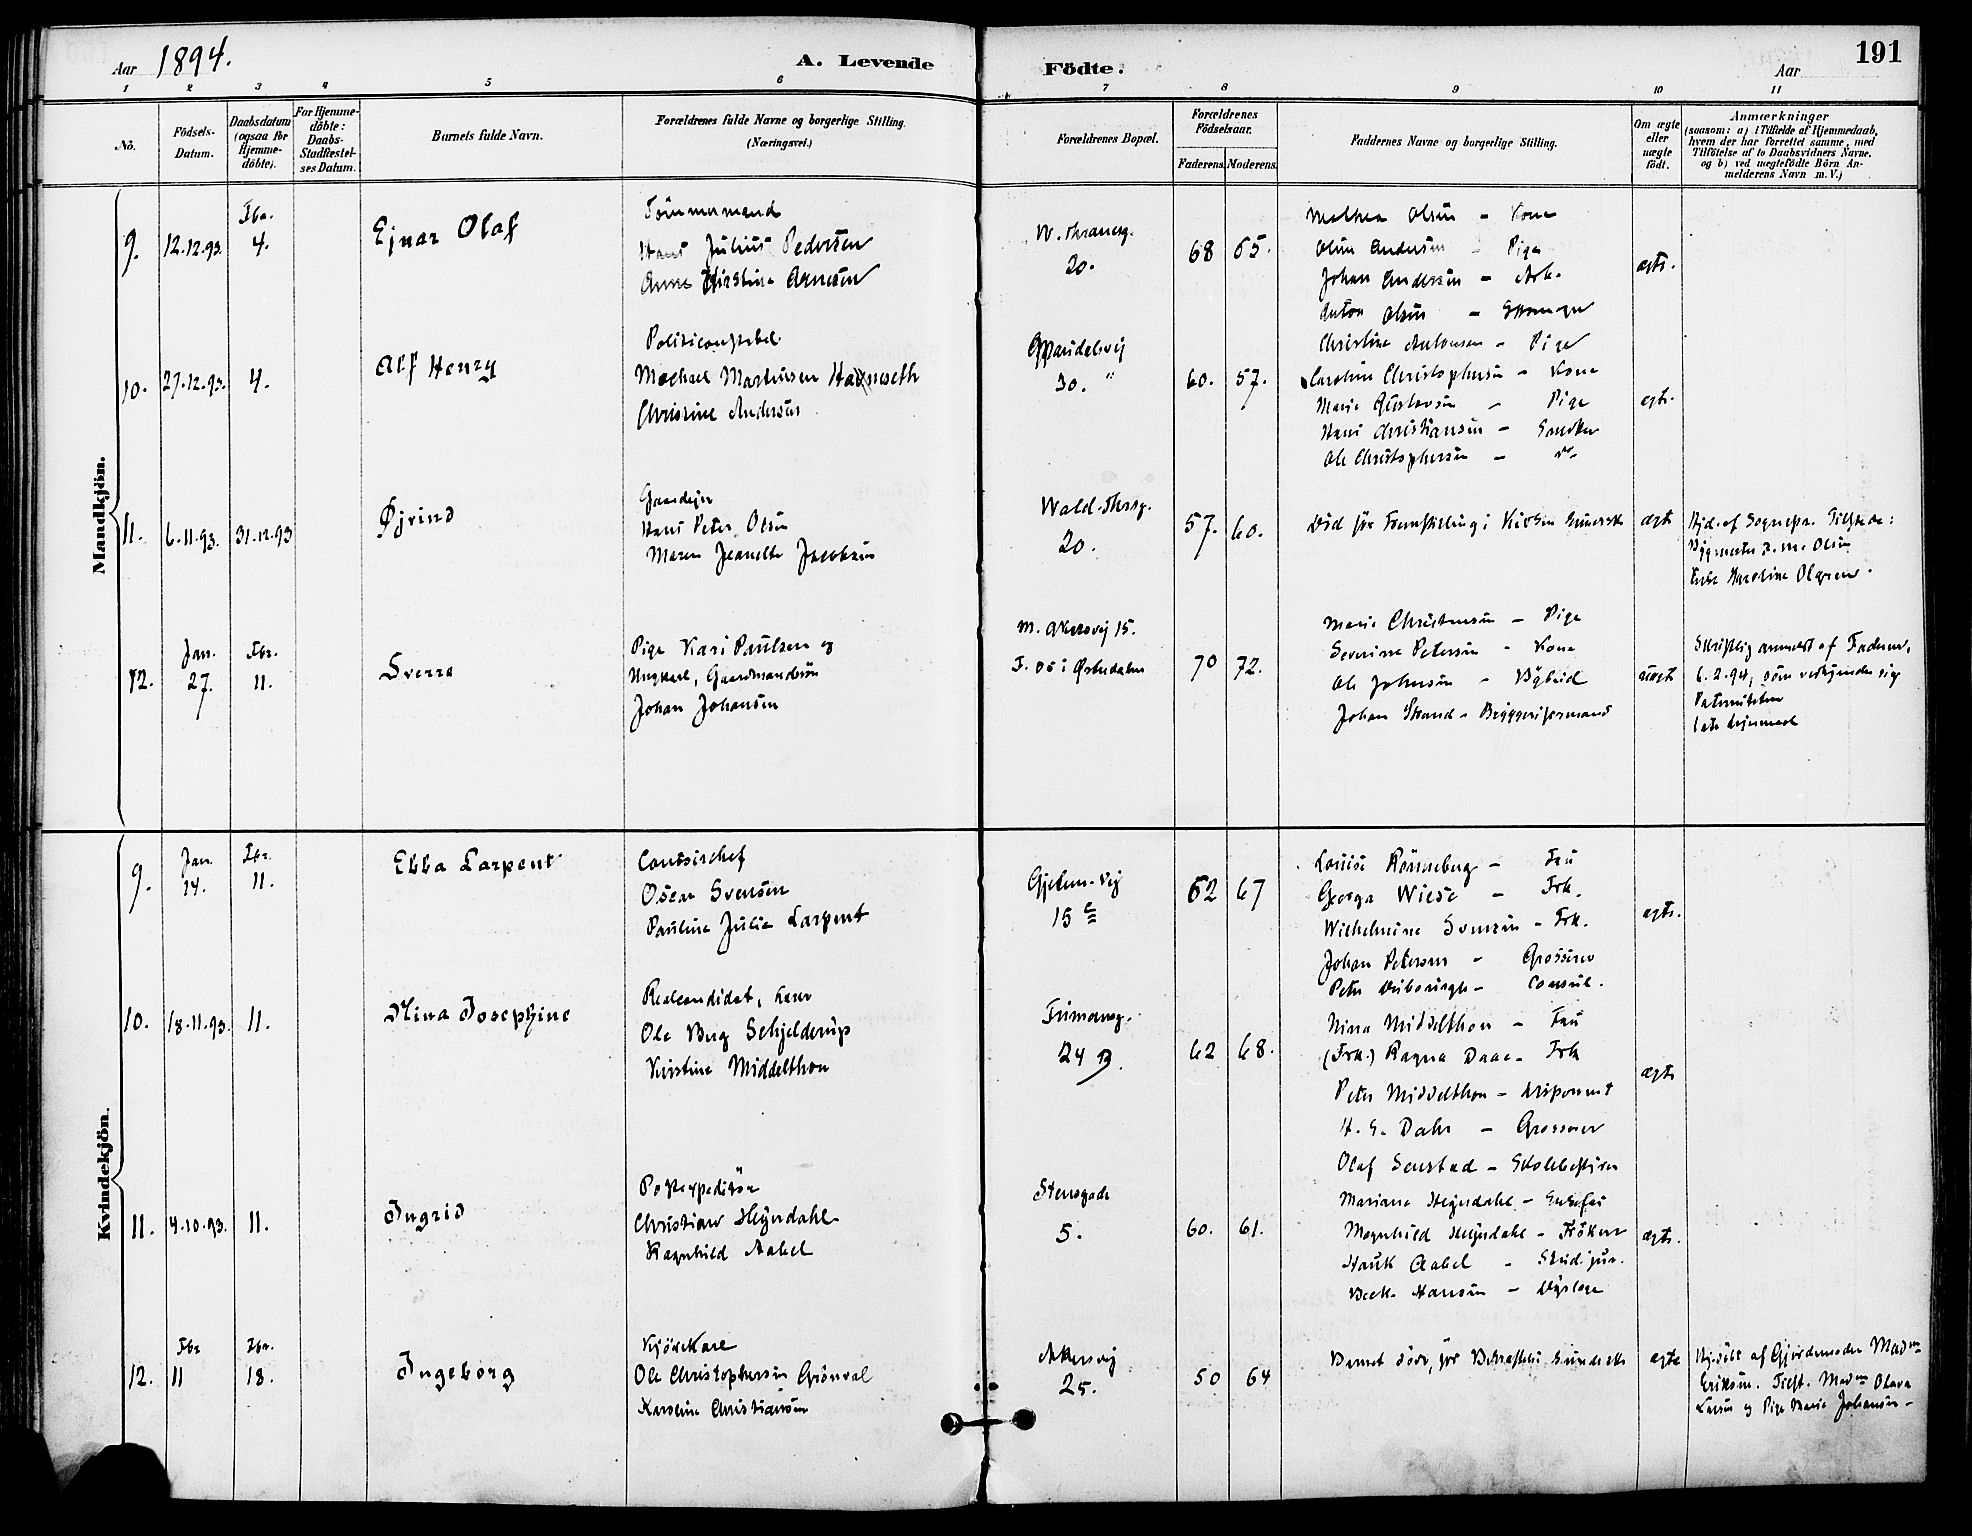 Aar 1894. A. Levende Födte. Aar 191
1 2 3 4 5 6 7 8 9 10 11
No.
Födsels-Datum.
Daabsdatum (ogsaa for Hjemme-döbte).
For Hjemme-döbte: Daabs-Stadfæstel-ses Datum.
Barnets fulde Navn.
Forældrenes fulde Navne og borgerlige Stilling.
(Næringsvei.)
Forældrenes Bopæl.
Forældrenes Födselsaar.
Faderens. Moderens.
Faddernes Navne og borgerlige Stilling.
Om ægte eller uægte födt.
Anmærkninger
(saasom: a) i Tilfælde af Hjemmedaab,
hvem der har forrettet samme, med
Tilföielse af to Daabsvidners Navne,
og b) ved uegtefödte Börn An-
melderens Navn m. V.)
Mandkjön.
9. 12.12.93. Fbr. 4. Ejnar Olaf
Tömmermand
Hans Julius Pedersen
Anne Kirstine Arnesen
20. 68 65.
Mathea Olsen - Kone
Oline Andersen - Pige
Johan Andersen - Arb.
Anton Olsen -
ægte.
10. 27.12.93. 4. Alf Henry
Politiconstabel
Michael Martinsen
Christine Andersen
30. 60. 57.
Christine Antonsen - Pige
Caroline Christophersen - Kone
Marie Gustavsen - Pige
Hans Christiansen - Snedker
Ole Christophersen - do.
ægte.
11. 6.11.93. 31.12.93 Øjvind
Gaardejer
Hans Peter Olsen
Maren Jeanette Jacobsen
Wald. Thrsg.
20. 57. 60.
Död för Fremstilling i Kirken
ægte
Hjd. af Sognepr.
Bygmester P. M. Olsen
Enke Karoline
12. Jan. 27. Fbr. 11. Sverre
Pige Kari Paulsen og
Ungkarl, Gaardmandssön
Johan Johansen
M. Akersvej 15.
F. 70 72.
Marie Christensen - Pige
Severine Petersen - Kone
Ole Johnsen - Bybud
Johan Strand - Bryggeriformand
uægte
Skriftlig anmeldt af Faderen,
6.2.94, som vedkjender sig
Paterniteten
Kvindekjön.
9. Jan. 14. Fbr. 11. Ebba Larpent
Contorchef
Oscar Svensen
Pauline Julie Larpent
Gjetem. Vej
15 c 52 67
Louise Rönneberg - Fru
Georga Wiese - Frk.
Wilhelmine Svensen - Frk.
Johan Petersen - Grosserer
Peter - Consul.
ægte.
10. 18.11.93. 11. Nina Josephine
Realcandidat, Lærer
Ole Berg Schjelderup
Kirstine Middelthon
Frimansg.
24 B. 62 68.
Nina Middelthon - Fru
(Frk.) Ragna Daae - Frk
Peter Middelthon - Disponent
H. S. Dahr - Grosserer
Olaf Senstad - Skolebestyrer
ægte
11. 4.10.93. 11. Ingrid
Postexpeditör
Christian Heyerdahl
Ragnhild Aabel
Stensgade
5. 60. 61.
Mariane Heyerdahl - Enkefru
Magnhild Heyerdahl - Fröken
Hauk Aabel - Stud. jur.
Hansen - Dyrlæge
ægte.
12. Fbr 11 Fbr. 18. Ingeborg
Kjörekarl
Ole Christophersen Grönvol
Karoline Christiansen
Akersvej
25. 50 64
Barnet döde för
ægte
Hjdöbt af Gjordemoder Mad.
Eriksen. Tilst. Mad. Olava
Larsen og Pige Marie Johansen